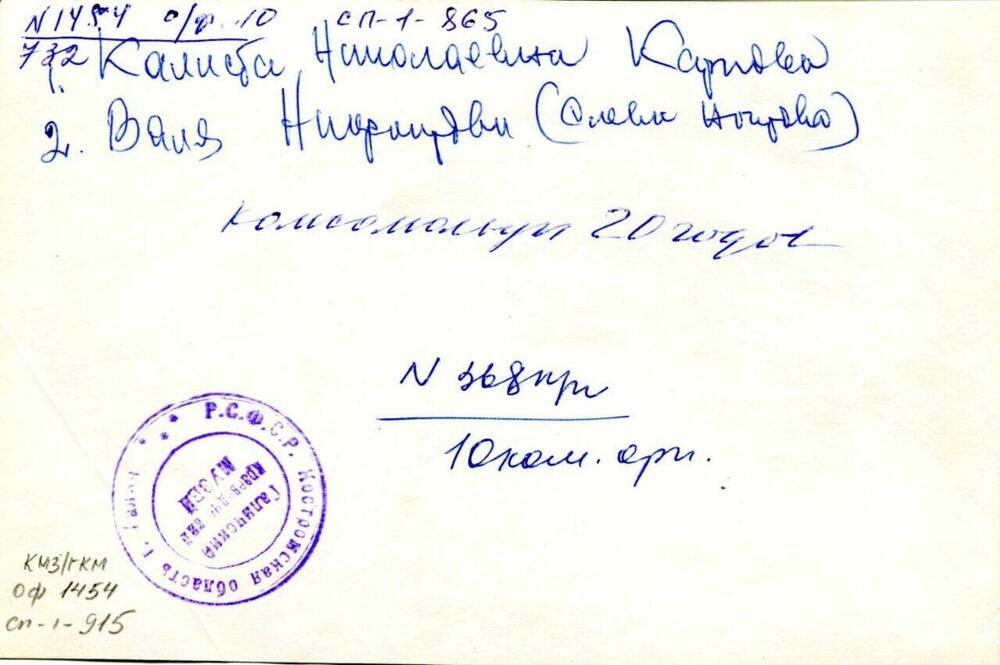 N 1454 о/ф. 10 СП-1-865
732
1. Николаевна Карпова
2. Валя
комсомольцы 20 годов
N 368
10 ком. орг.
Р.С.Ф.С.Р. Костромская область г. Галич
Галичский
краеведческий
МУЗЕЙ
КМЗ/ГКМ
ОФ 1454
СП-1-915